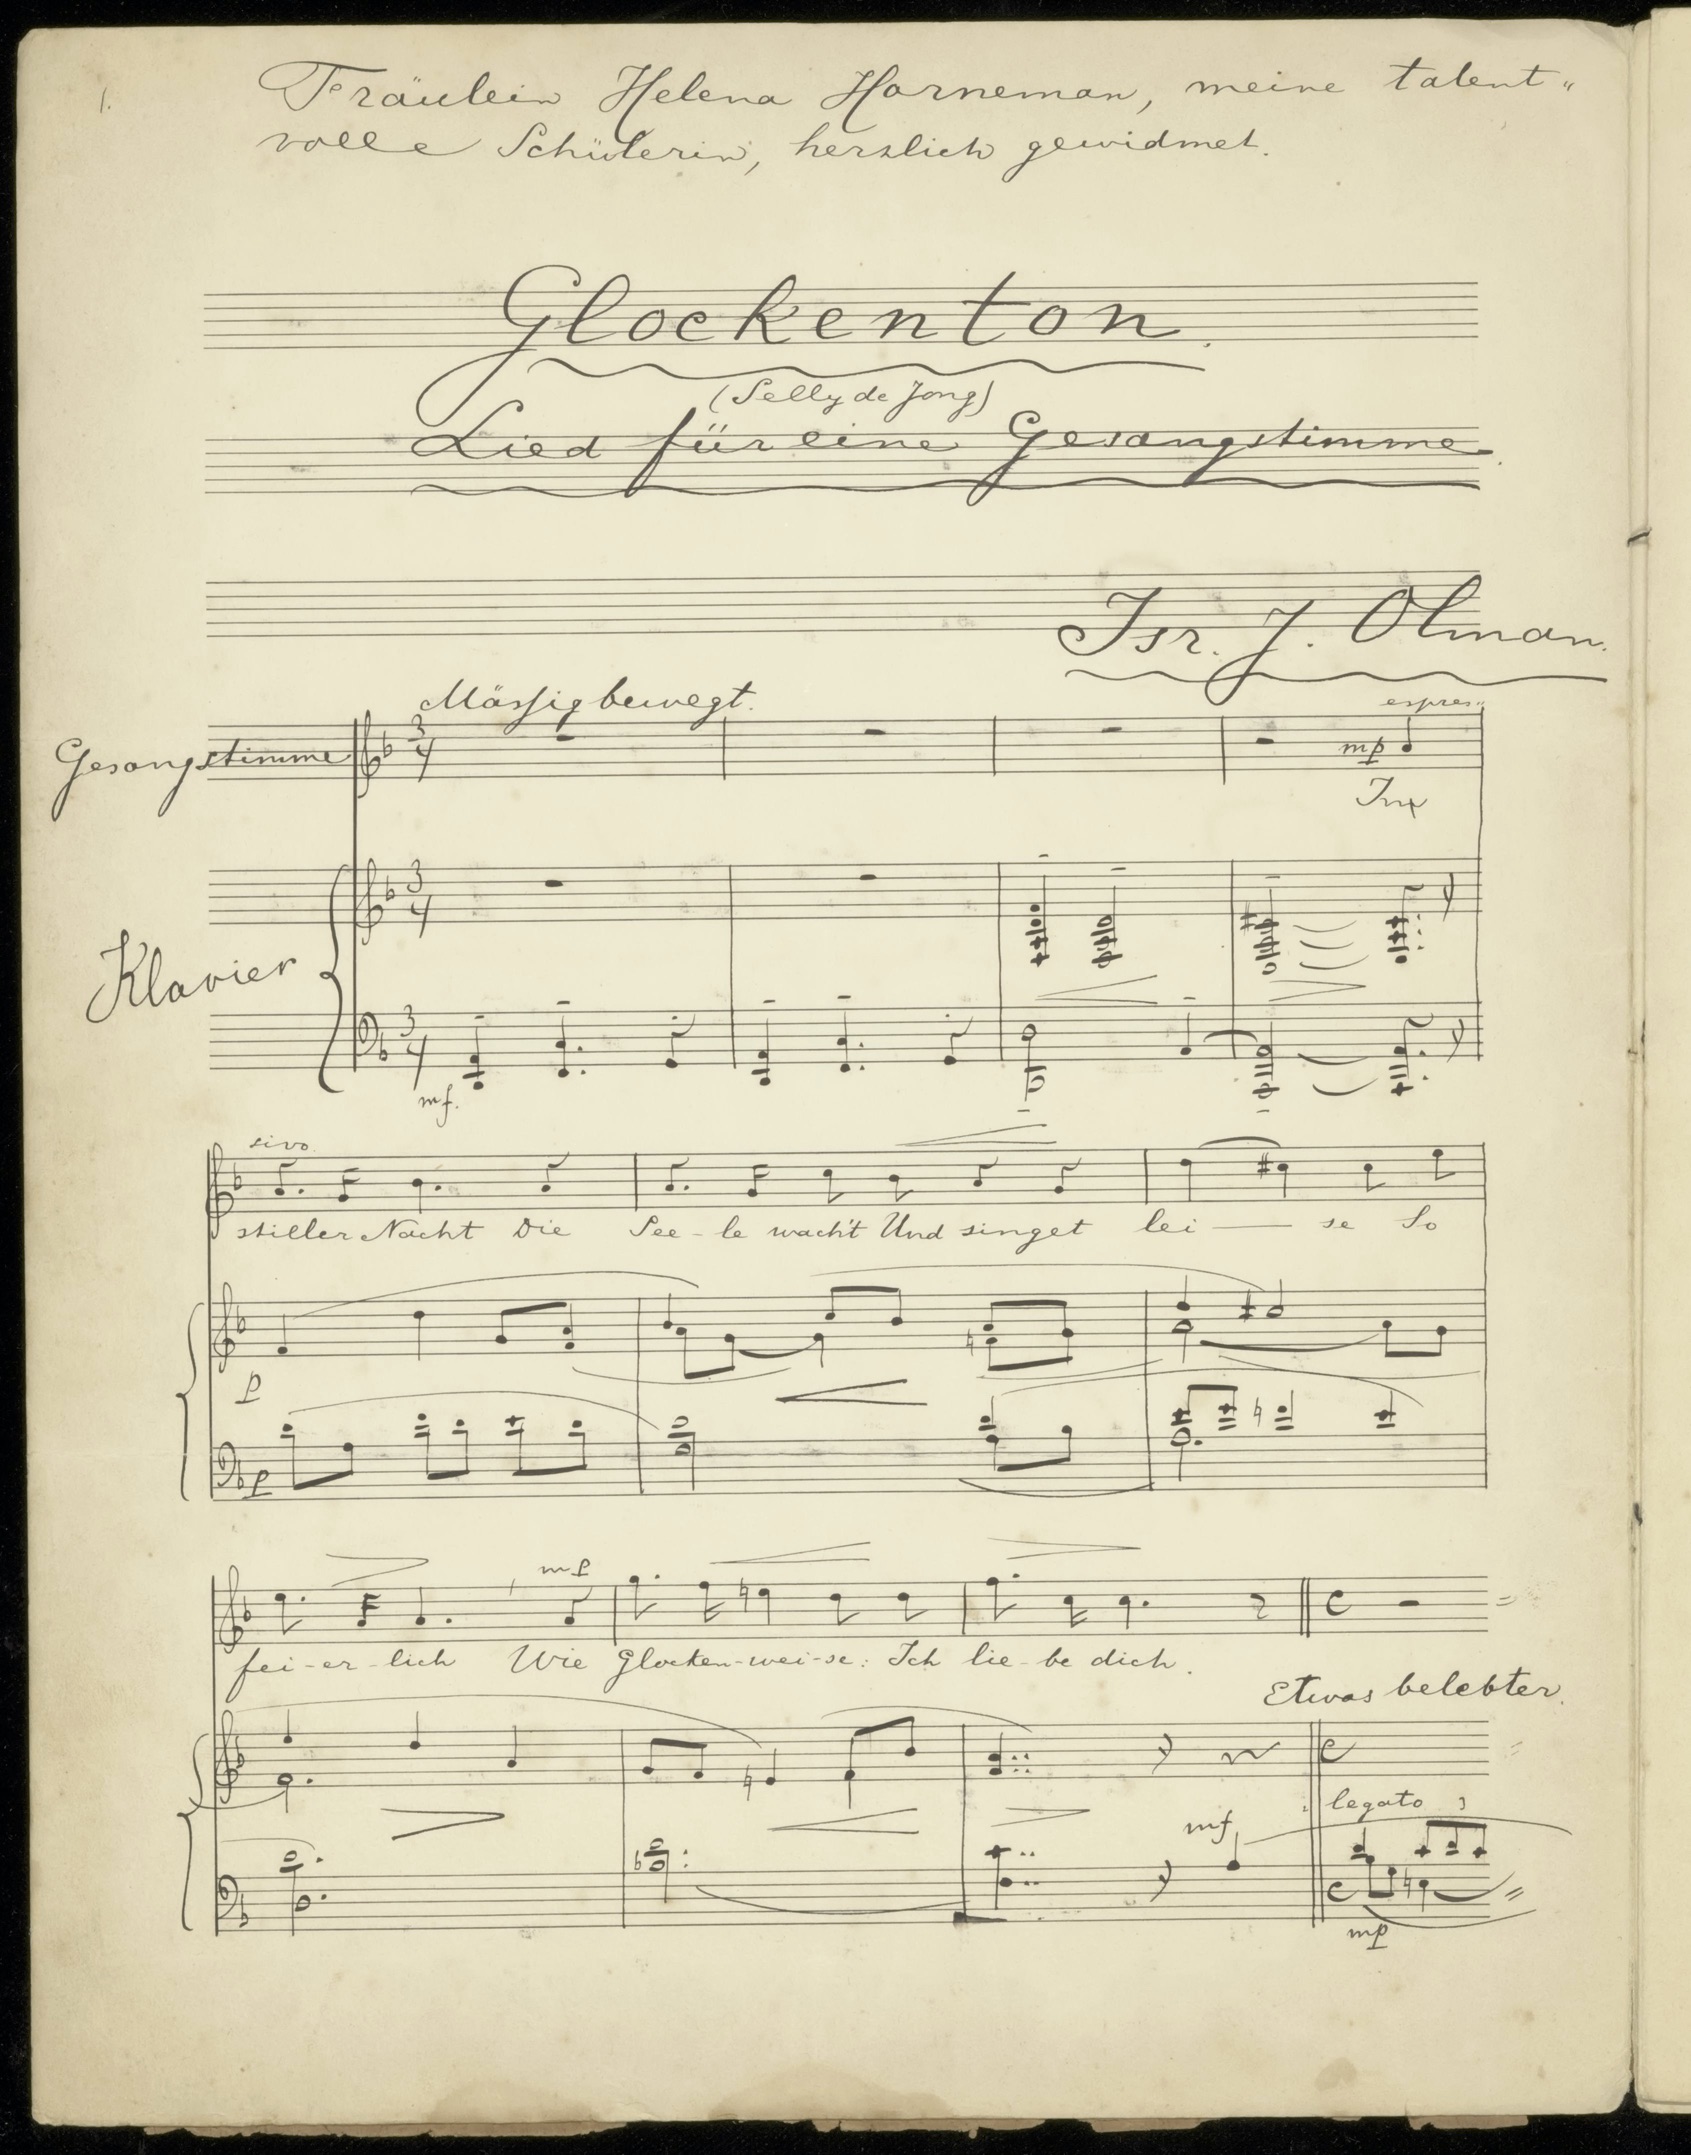 1.
Fräulein Helena Horneman, meine talent„
volle Schülerin, herzlich gewidmet.
Glockenton.
(Selly de Jong)
Lied für eine Gesangstimme.
Isr. J. Olman.
Mässig bewegt.
espres„
Gesangstimme
3/4
mp
In
Klavier
3/4
3/4
mf.
sivo
stiller Nacht Die See-le wach't Und singet lei — se So
p
p
mp
fei-er-lich Wie Glocken-wei-se: Ich lie-be dich.
Etwas belebter.
legato
mf
mp